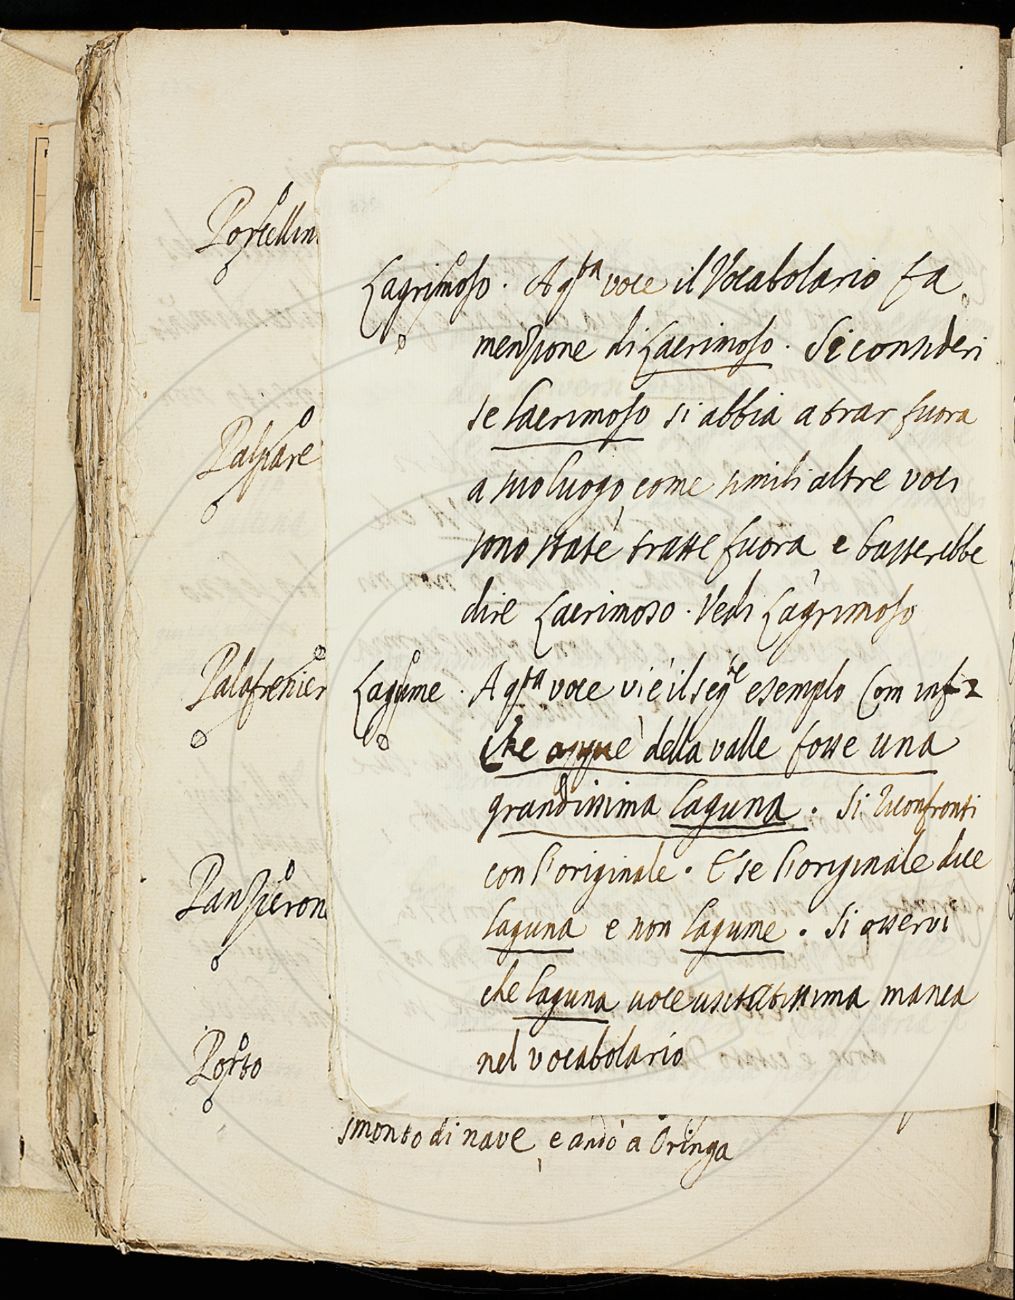 Porcellin
Lagrimoso. A q.sta voce il Vocabolario fa
menzione di Lacrimoso. Si consideri
se Lacrimoso si abbia a trar fuora
Palpare
a suo luogo, come simili altre voci
sono state tratte fuora e basterebbe
dire Lacrimoso. Vedi Lagrimoso
Palafrenier
Lagume. A q.sta voce vi è il seg.te esempio Com inf. 2
Che acque della valle fosse una
grandissima laguna. Si riconfronti
con l'originale. E se l'originale dice
Panzieron
laguna e non lagume. Si osservi
che laguna voce usitatissima manca
nel vocabolario
Porto
smonto di nave, e andò a Oringa